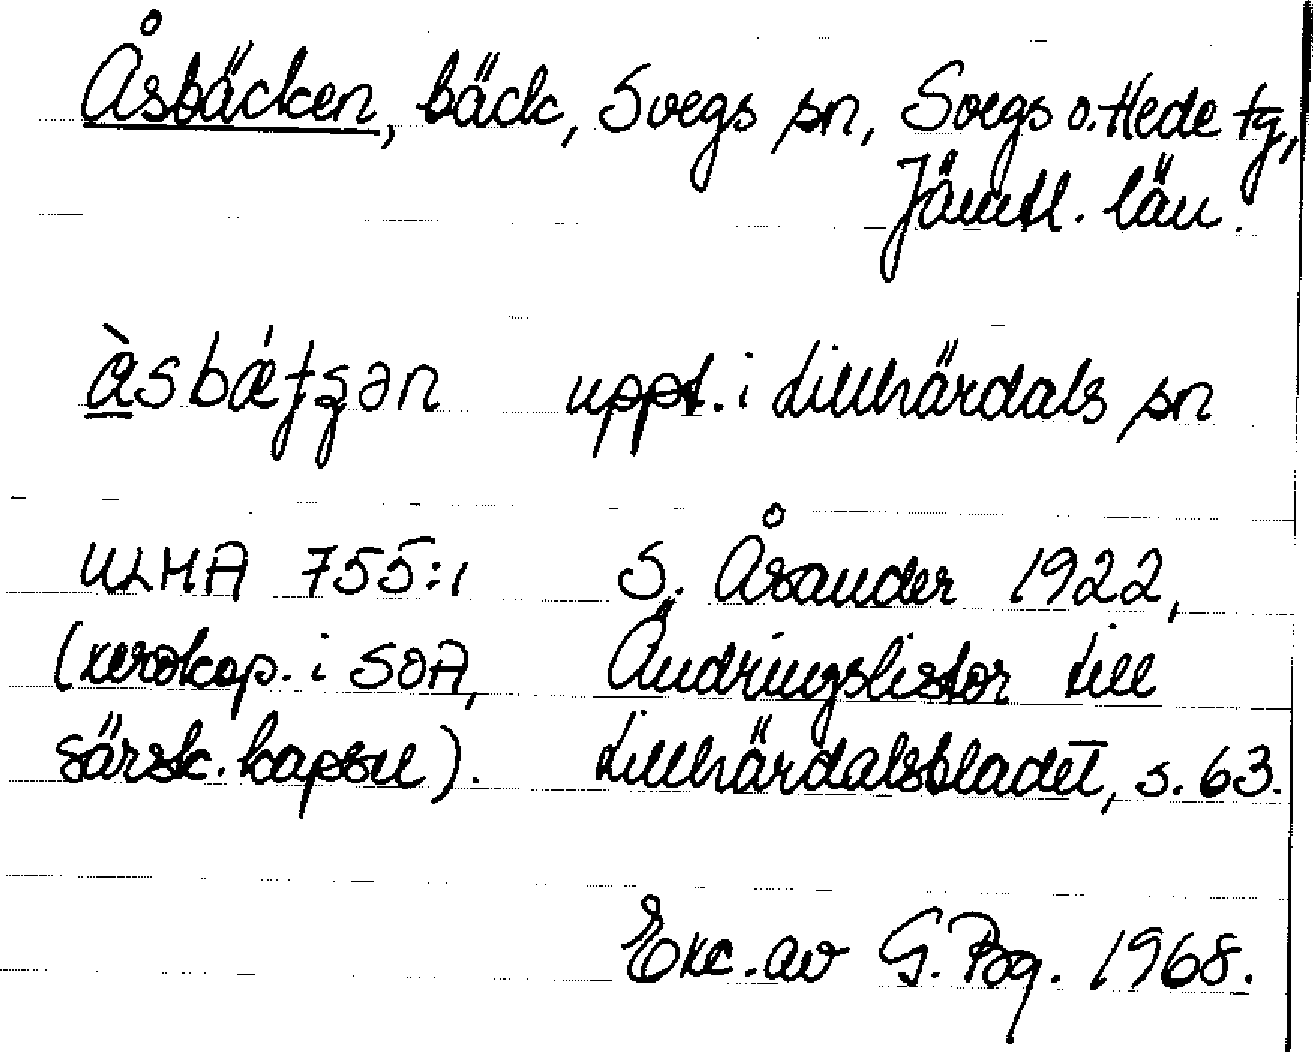 Åsbäcken, bäck, Svegs sn, Svegs o. Hede tg,
Jämtl. län.
uppt. i Lillhärdals sn
ULMA 755:1 S. Åsander 1922,
(xerokop. i SOA, Ändringslistor till
särsk. kapsel). Lillhärdalsbladet, s. 63.
Exc. av G. Bg. 1968.